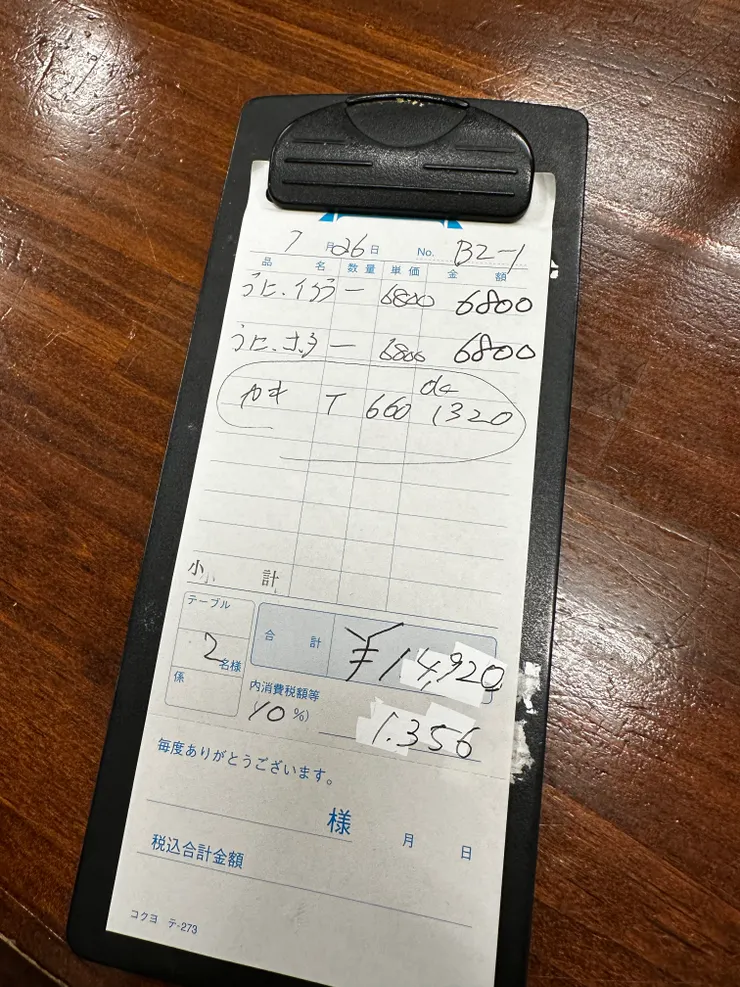 7月26日 No. B2-1
品名 数量 単価 金額
うに、イクラ 一 6800 6800
うに、ホタ 一 6800 6800
カキ T 660 1320
小計
テーブル
2名様
係
合計 ¥14,920
内消費税額等
(10%) 1,356
毎度ありがとうございます。
様 月 日
税込合計金額
コクヨ テ-273